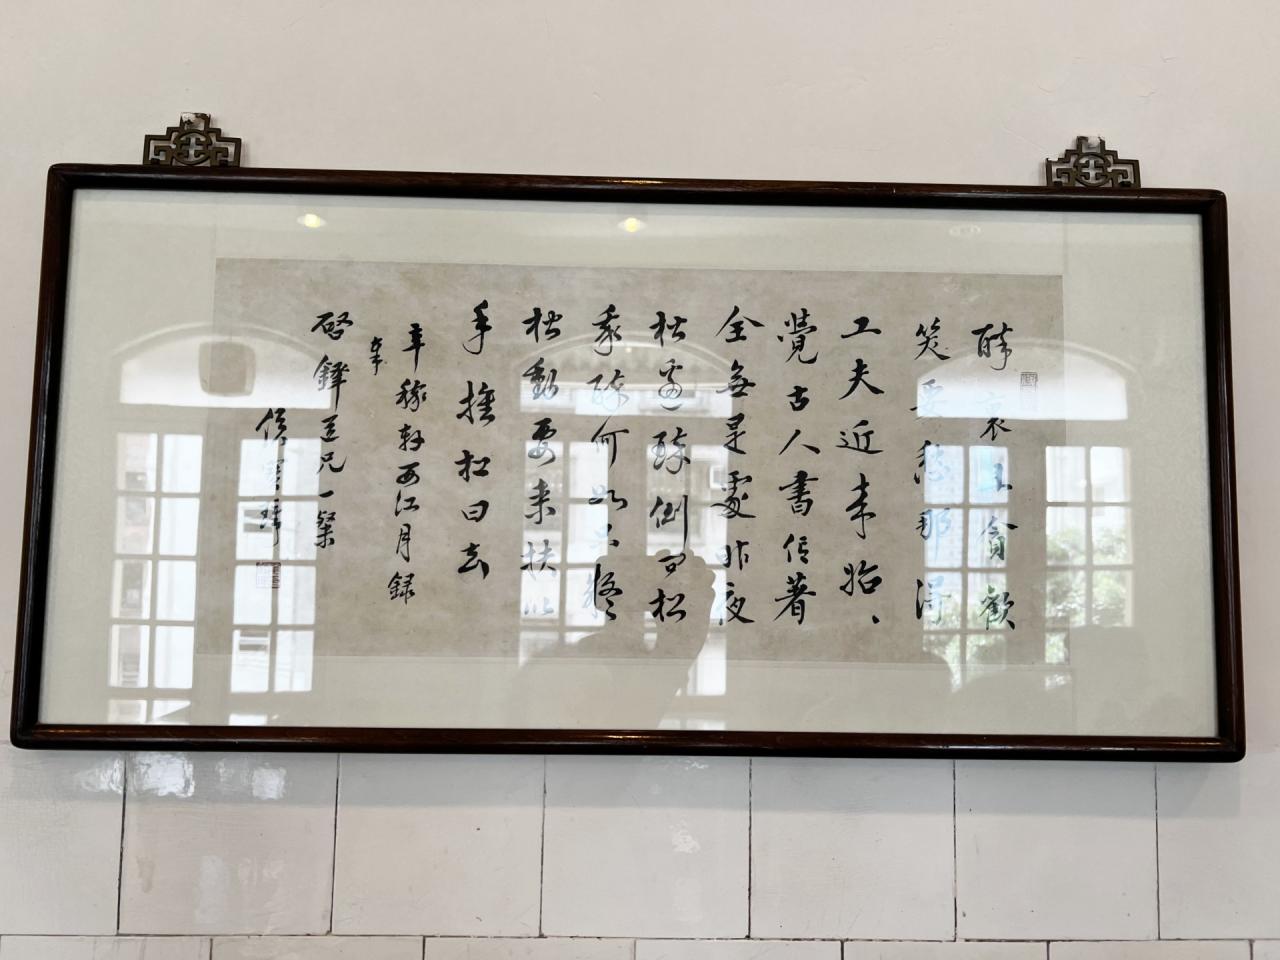 醉裏且貪歡
笑要愁那得
工夫近来始、
覺古人書信著
全無是處昨夜
松邊醉倒问松
我醉何如只疑
松動要来扶以
手推松曰去
辛稼軒西江月録
奉
啓鐸道兄一粲
侯寶璋